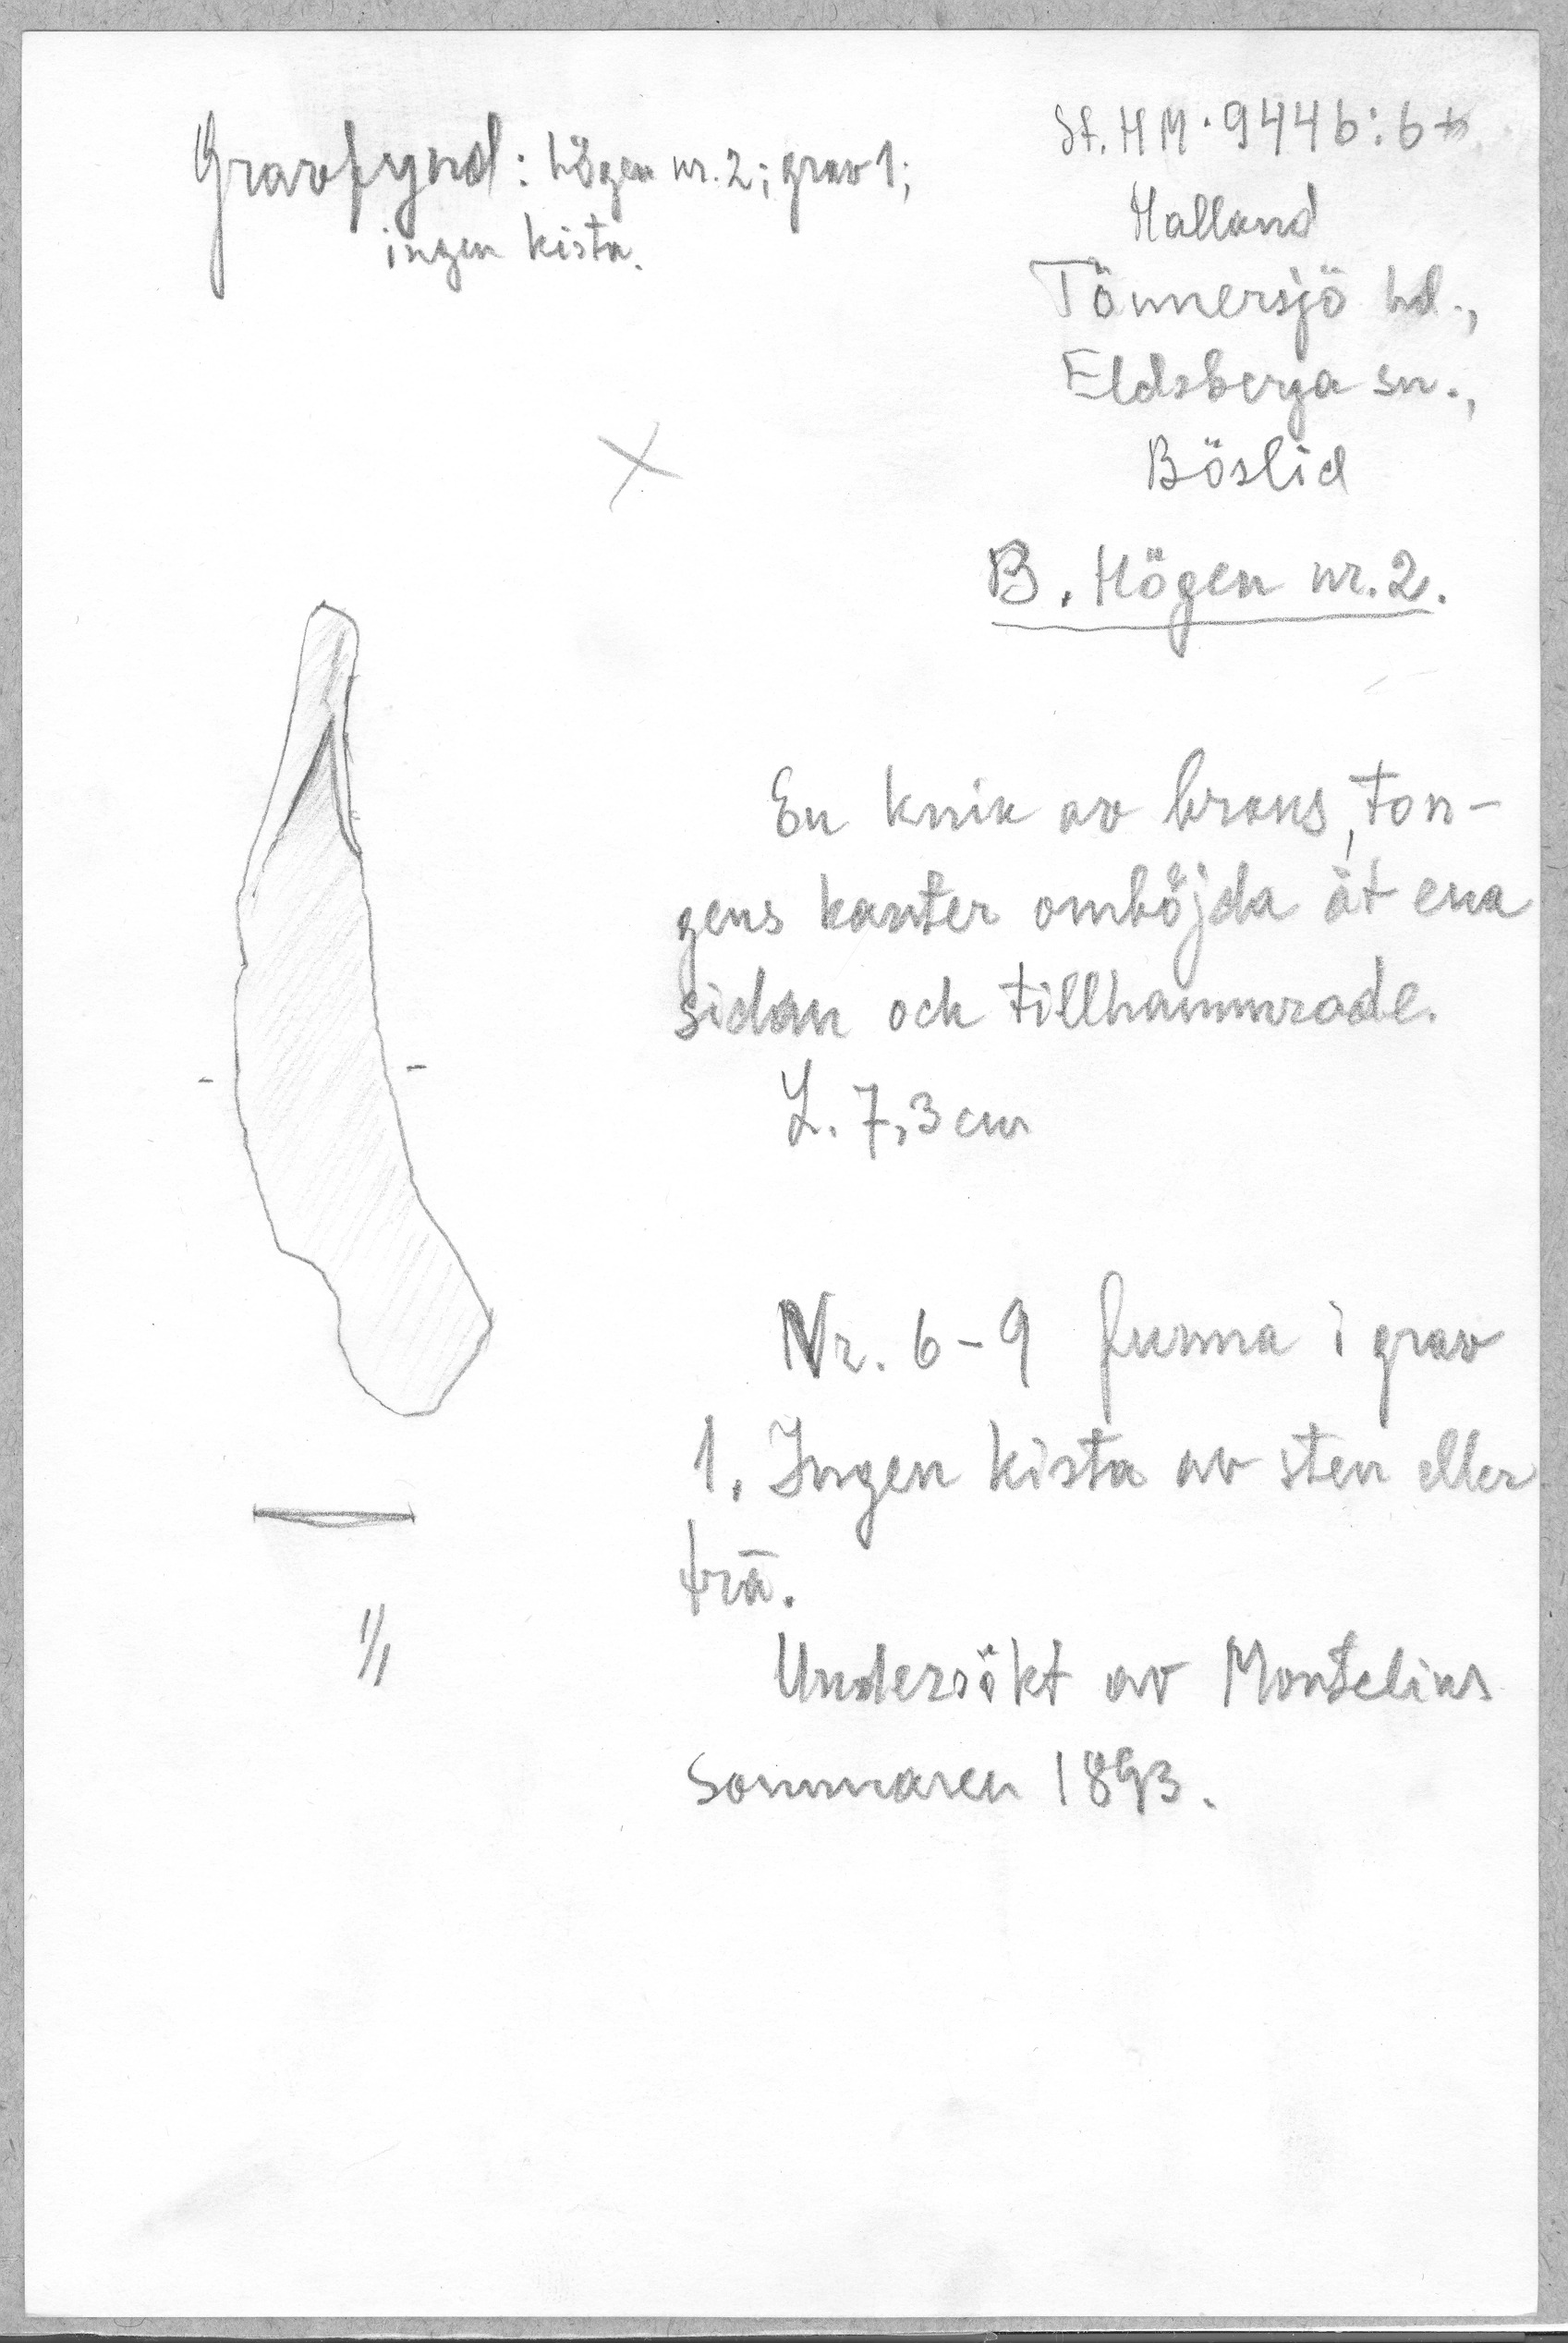 Gravfynd: högen nr. 2; grav 1;
ingen kista.
St. HM. 9446: 6
Halland
Tönnersjö hd.,
Eldsberga sn.,
Böslid
B. Högen nr. 2.
En kniv av brons, ton-
gens kanter omböjda åt ena
sidan och tillhammrade.
L. 7,3 cm
Nr. 6-9 funna i grav
1. Ingen kista av sten eller
trä.
Undersökt av Montelius
sommaren 1893.
1/1